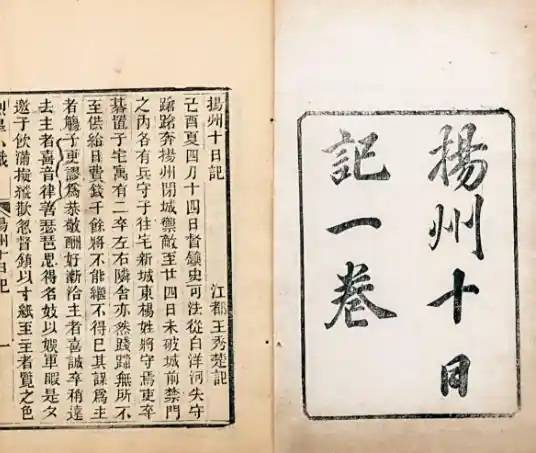 揚州十日
記一卷
揚州十日記 江都王秀楚記
己酉夏四月十四日督鎮史可法從白洋河失守
踉蹌奔揚州閉城禦敵至廿四日未破城前禁門
之內各有兵守予住宅新城東楊姓將守焉吏卒
棊置予宅寓有二卒左右隣舍亦然踐踏無所不
至供給日費錢千餘將不能繼不得已共謀為主
者觴予更謬為恭敬酬好漸洽主者喜誡卒稍遠
去主者喜音律善琵琶思得名妓以娛軍暇是夕
邀予飲滿擬縱歡忽督鎮以寸紙至主者覽之色
揚州十日記 一